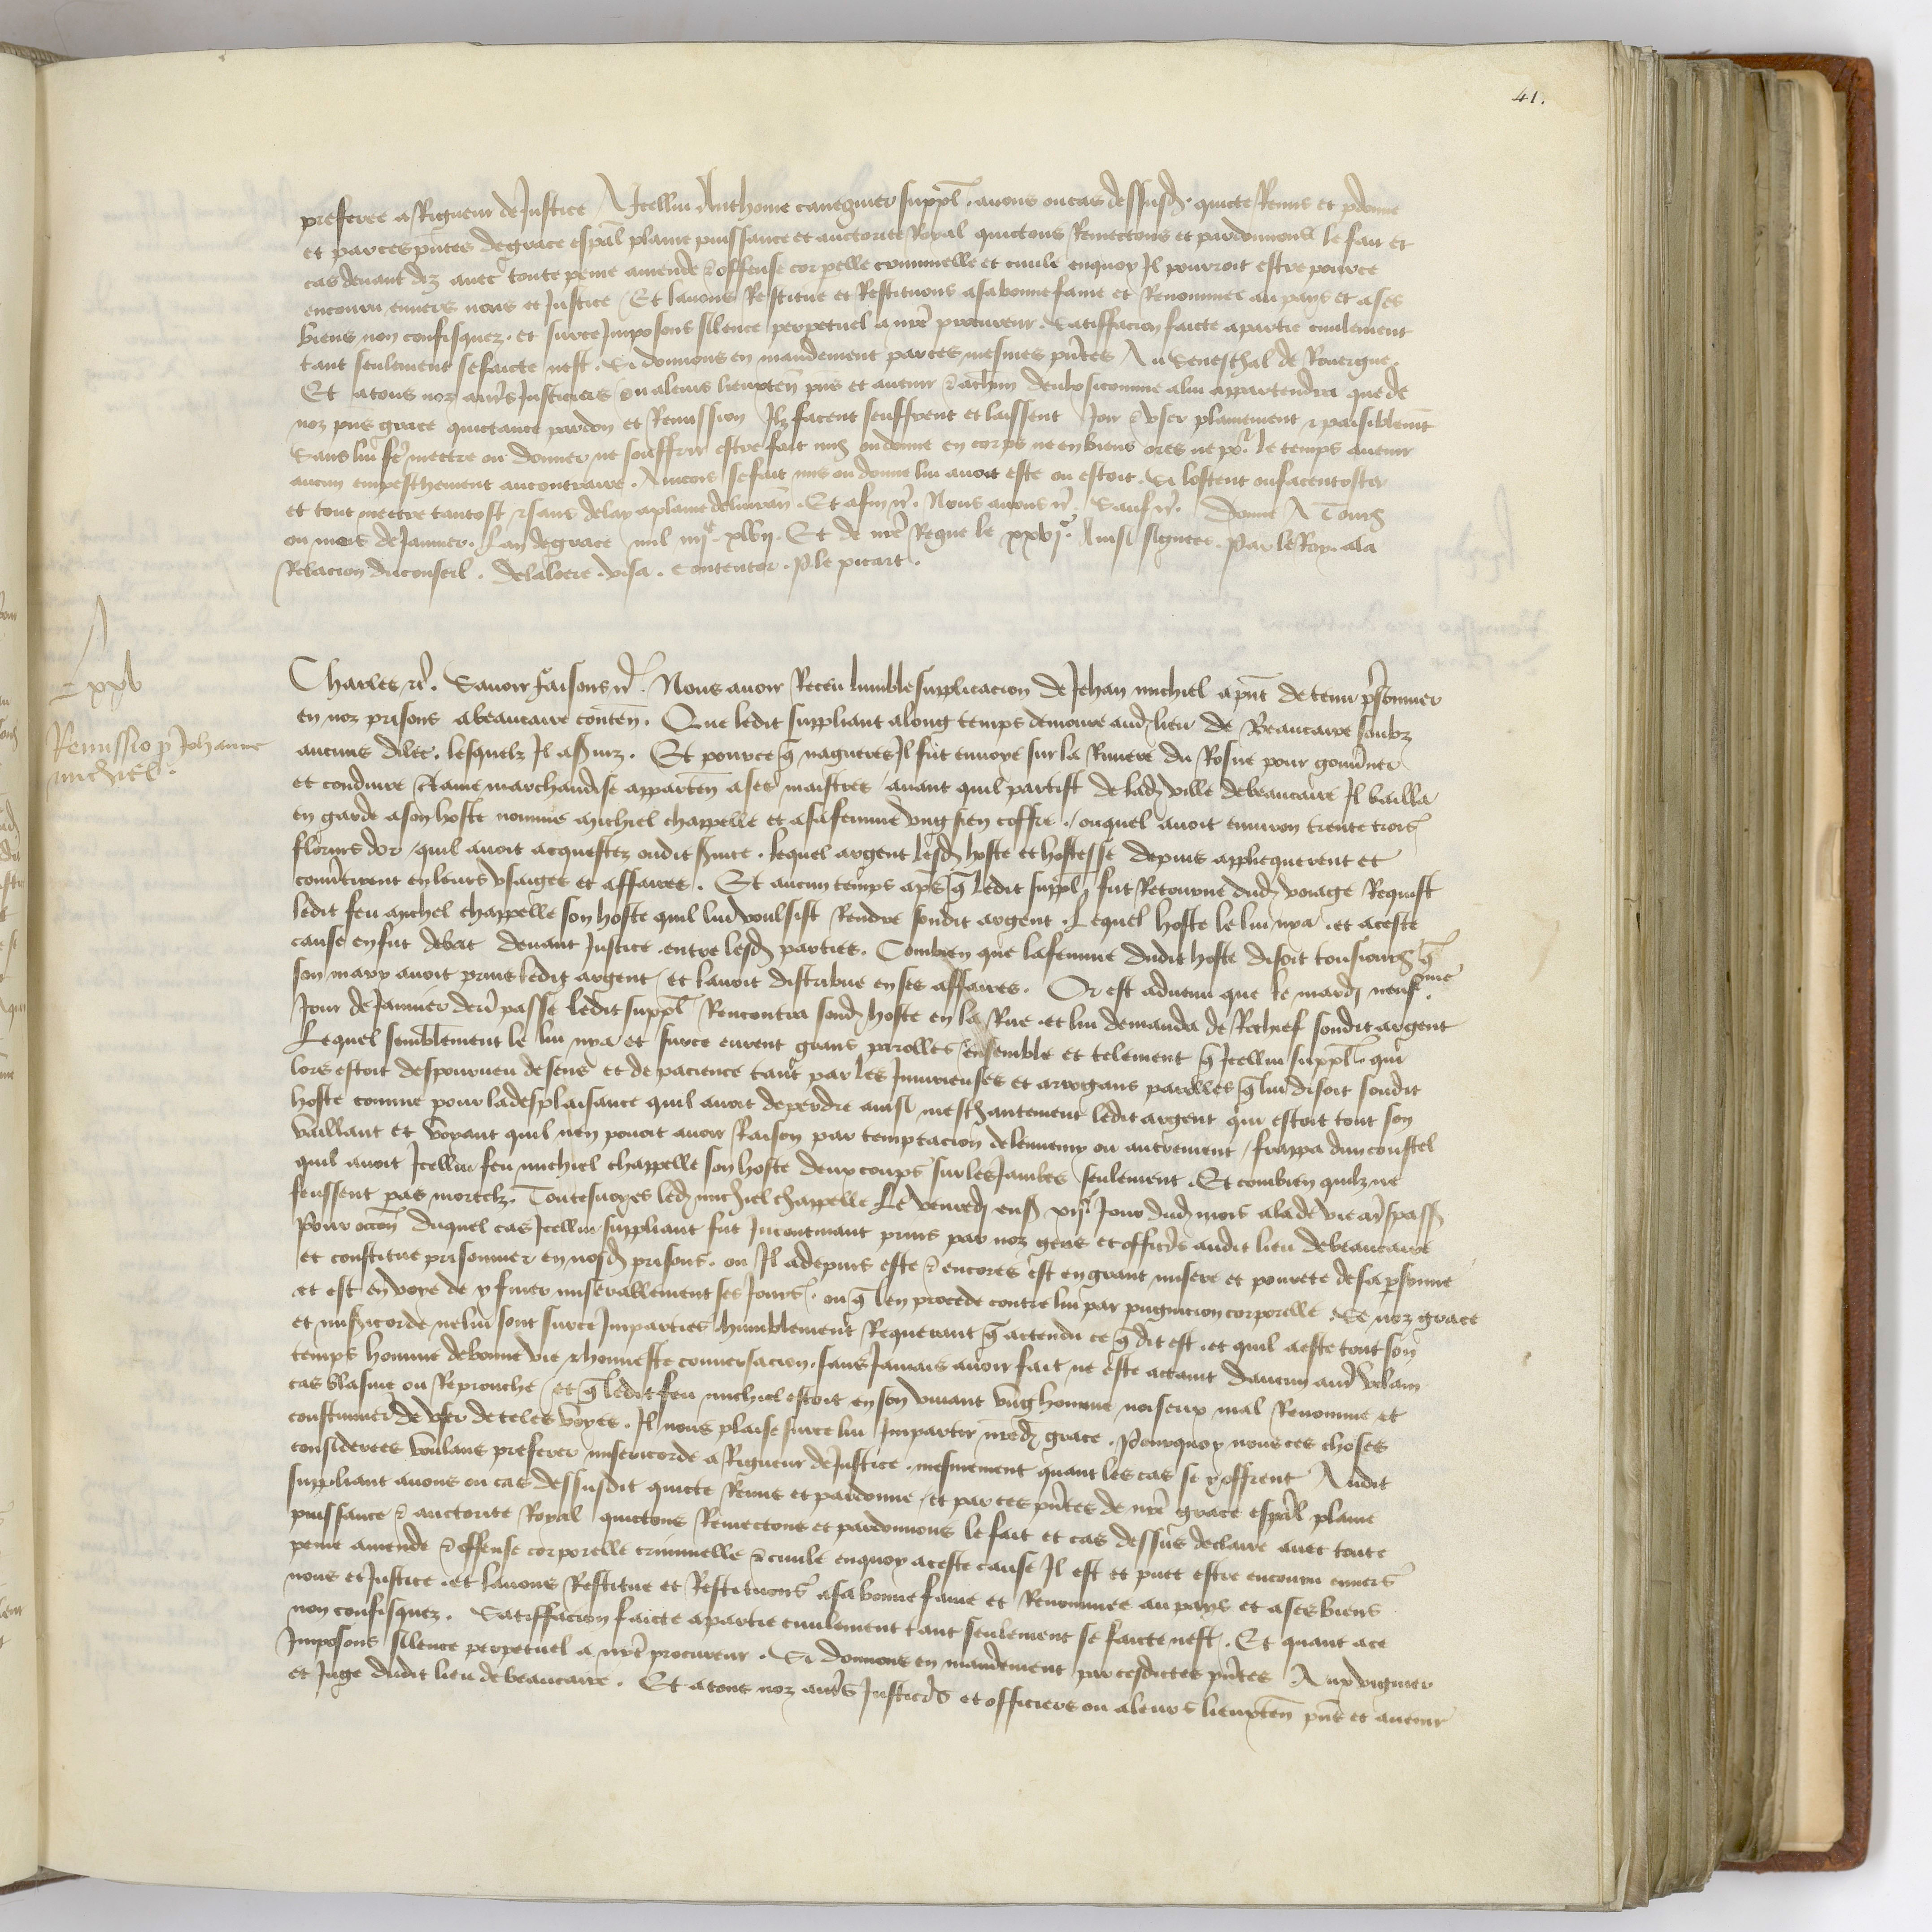 41.
preferee a Rigueur de Justice A Icellui Anthoine caneguier suppl. avons ou cas dessusd. quicte Remis et pdonne
et par ces pntes de grace espal plaine puissance et auctorite Royal quictons Remectons et pardonnons le fait et
cas devant diz avec toute peine amende & offense corporelle criminelle et civile enquoy Il pourroit estre pource
encouru envers nous et Justice / Et lavons Restitue et Restituons a sa bonne fame et Renommee au pays et a ses
biens non confisquez. et surce Imposons silence perpetuel a nre procureur. Satiffacion faicte a partie civilement
tant seulement se faicte nest. Si donnons en mandement par ces mesmes pntes Au Seneschal de Rouergue.
Et a tous noz autrs Justiciers ou a leurs lieuxten pns et avenir & a chun deulx sicomme a lui appartendra que de
noz pns grace quictance pardon et Remission Ilz facent seuffrent et laissent Joir & user plainement & paisiblemt
Sans lui fe mectre ou donner ne souffrir estre fait mis ou donne en corps ne en biens ores ne po.r le temps avenir
aucun empeschement au contraire. Aincois se fait mis ou donne lui avoit este ou estoit. Si lostent ou facent oster
et tout mectre tantost & sans delay a plaine delivran. Et afin &c. Nous avons &c. Sauf &c. Donne A Tours
ou mois de Janvier. Lan de grace mil iiijc xlvij. Et de nre Regne le xxvje. Ainsi signee. Par le Roy. a la
Relacion du conseil. Delaloere. visa. Contentor. P. le picart.
Lxxv
Remissio p Johanne
michiel.
Charles &c. Savoir faisons &c. Nous avoir Receu lumble supplicacion de Jehan michiel a pnt detenu prisonnier
en noz prisons a beaucaire conten. Que ledit suppliant a long temps demoure aud. lieu de Beaucaire soubz
aucuns dilec. lesquelz Il a serviz. Et pource q nagueres Il fut envoye sur la Riviere du Rosne pour gouvner
et conduire ctaine marchandise apparten a ses maistres / avant quil partist de lad. ville de beaucaire Il bailla
en garde a son hoste nomme michiel chappelle et a sa femme ung sien coffre. / ouquel avoit environ trente trois
florins dor / quil avoit acquestez oudit svice. lequel argent lesd. hoste et hostesse depuis appliequerent et
convtirent en leurs usaiges et affaires. Et aucun temps aps q ledit suppl. fut Retourne dud. voiage Requist
ledit feu michel chappelle son hoste quil lui voulsist Rendre sondit argent. Lequel hoste le lui nya. et a ceste
cause en fut debat devant Justice entre lesd. parties. Combien que la femme dudit hoste disoit tousiours q
son mary avoit prins ledit argent / et lavoit distribue en ses affaires. Or est advenu que le mardi neufme
Jour de Janvier derr passe ledit suppl. Rencontra sond. hoste en la Rue. et lui demanda de Rechief sondit argent
Lequel semblement le lui nya et surce eurent grans parolles ensemble et telement q Icellui suppl. qui
lors estoit despourveu de sens et de pacience tant par les Injurieuses et arrogans parolles q lui disoit sondit
hoste comme pour la desplaisance quil avoit de perdre ainsi meschantement ledit argent qui estoit tout son
vaillant et voyant quil nen povoit avoir Raison par temptacion de lennemy ou autrement / frappa dun coustel
quil avoit Icellui feu michiel chappelle son hoste deux coups sur les Jambes seulement. Et combien quilz ne
feussent pas mortelz. Toutesvoyes led. michiel chappelle Le vendredi ens. xije Jour dud. mois ala de vie a trespass.
Pour occon duquel cas Icellui suppliant fut Incontinant prins par noz gens et officrs audit lieu de beaucaire
et constitue prisonnier en nosd. prisons. ou Il a depuis este & encores est en grant misere et povrete de sa psonne
et est en voye de y finer miserablement ses Jours. ou q len procede contre lui par pugnicion corporelle. Se noz grace
et misicorde ne lui sont surce Imparties humblement Requerant q actendu ce q dit est. et quil a este tout son
temps homme de bonne vie & honneste conversacion. sans Jamais avoir fait ne este actaint daucun autr vilain
cas blasme ou Reprouche / et q ledit feu michiel estoit en son vivant ung homme noiseux mal Renomme et
coustumier de user de teles voyes. Il nous plaise surce lui Impartir nred. grace. Pourquoy nous ces choses
considerees voulans preferer misericorde a Rigueur de Justice. mesmement quant les cas se y offrent Audit
suppliant avons ou cas dessusdit quicte Remis et pardonne / et par ces pntes de nre grace espal plaine
puissance & auctorite Royal quictons Remectons et pardonnons le fait et cas dessus declaire avec toute
peine amende & offense corporelle criminelle & civile enquoy a ceste cause Il est et puet estre encouru envers
nous et Justice. et lavons Restitue et Restituons a sa bonne fame et Renommee au pays et a ses biens
non confisquez. Satiffacion faicte a partie civilement tant seulement se faicte nest. Et quant a ce
Imposons silence perpetuel a nre procureur. Si donnons en mandement par cesdictes pntes Aux viguier
et Juge dudit lieu de beaucaire. Et a tous noz autrs Justicrs et officiers ou a leurs lieuxten pns et avenir